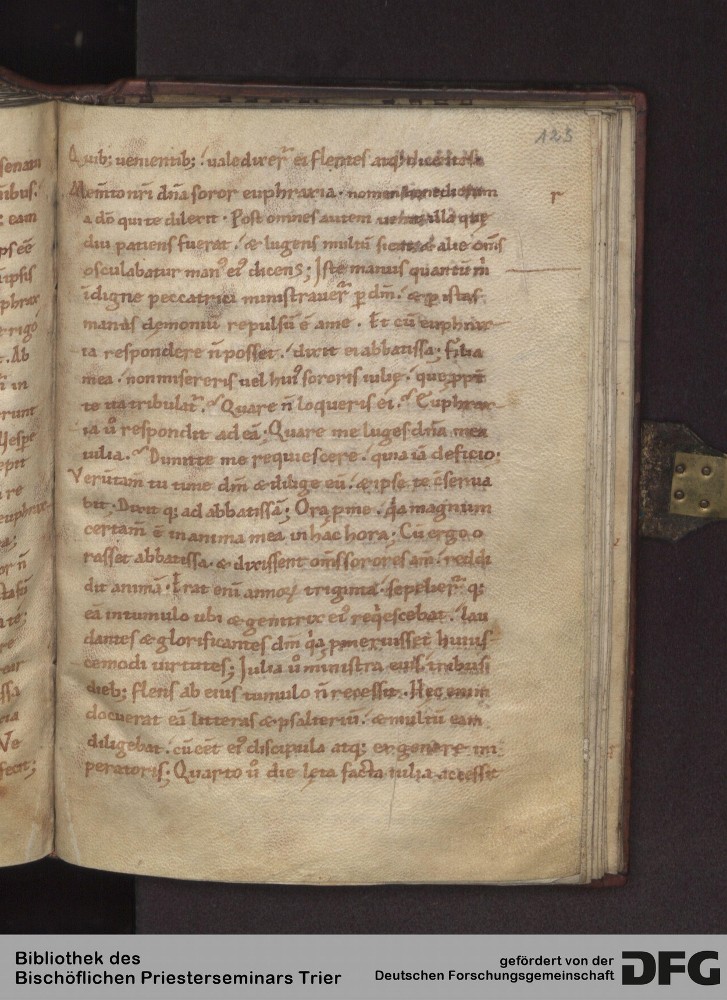 123
Quib; uenientib; ualedixer̄ ei flentes atq;
Mem̄to nr̄i dn̄a soror euphraxia · nomen
a dō qui te dilexit · Post omnes autem illa quę
diu patiens fuerat · & lugens multū alie om̄s
osculabatur man᷒ ei᷒ dicens; Iste manus quantum m̄
īdigne peccatrici ministrauer̄ p dm̄ · & p istas
manus dęmoniū repulsū ē a me · Et cū euphrax
ia respondere n̄ posset · dixit ei abbatissa; Filia
mea · non misereris uel hui᷒ sororis iulię · que ppt̄
te ita tribulat᷑ · Quare n̄ loqueris ei · Euphrax
ia ū respondit ad eā · Quare me luges dn̄a mea
iulia · Dimitte me requiescere · quia iā deficio;
Verūtam̄ tu time dm̄ & dilige eū · & ipse te c̄serua
bit · Dixit q; ad abbatissā; Ora p me · q̄a magnum
certam̄ ē in anima mea in hac hora; Cū ergo o
rasset abbatissa · & dixissent om̄s sorores am̄ · reddi
dit animā · Erat enī annoꝝ triginta · Sepelier̄ q;
eā in tumulo ubi & genitrix ei᷒ req̄escebat · lau
dantes & glorificantes dm̄ q̄a pmeruisset huius
cemodi uirtutes; Iulia ū ministra eius tribus
dieb; flens ab eius tumulo n̄ recessit · Hęc enim
docuerat eā litteras & psalteriū · & multū eam
diligebat · cū cēt ei᷒ discipula atq; ex genere im
peratoris; Quarto ū die lęta facta iulia accessit
r
Bibliothek des
Bischöflichen Priesterseminars Trier
gefördert von der
Deutschen Forschungsgemeinschaft
DFG